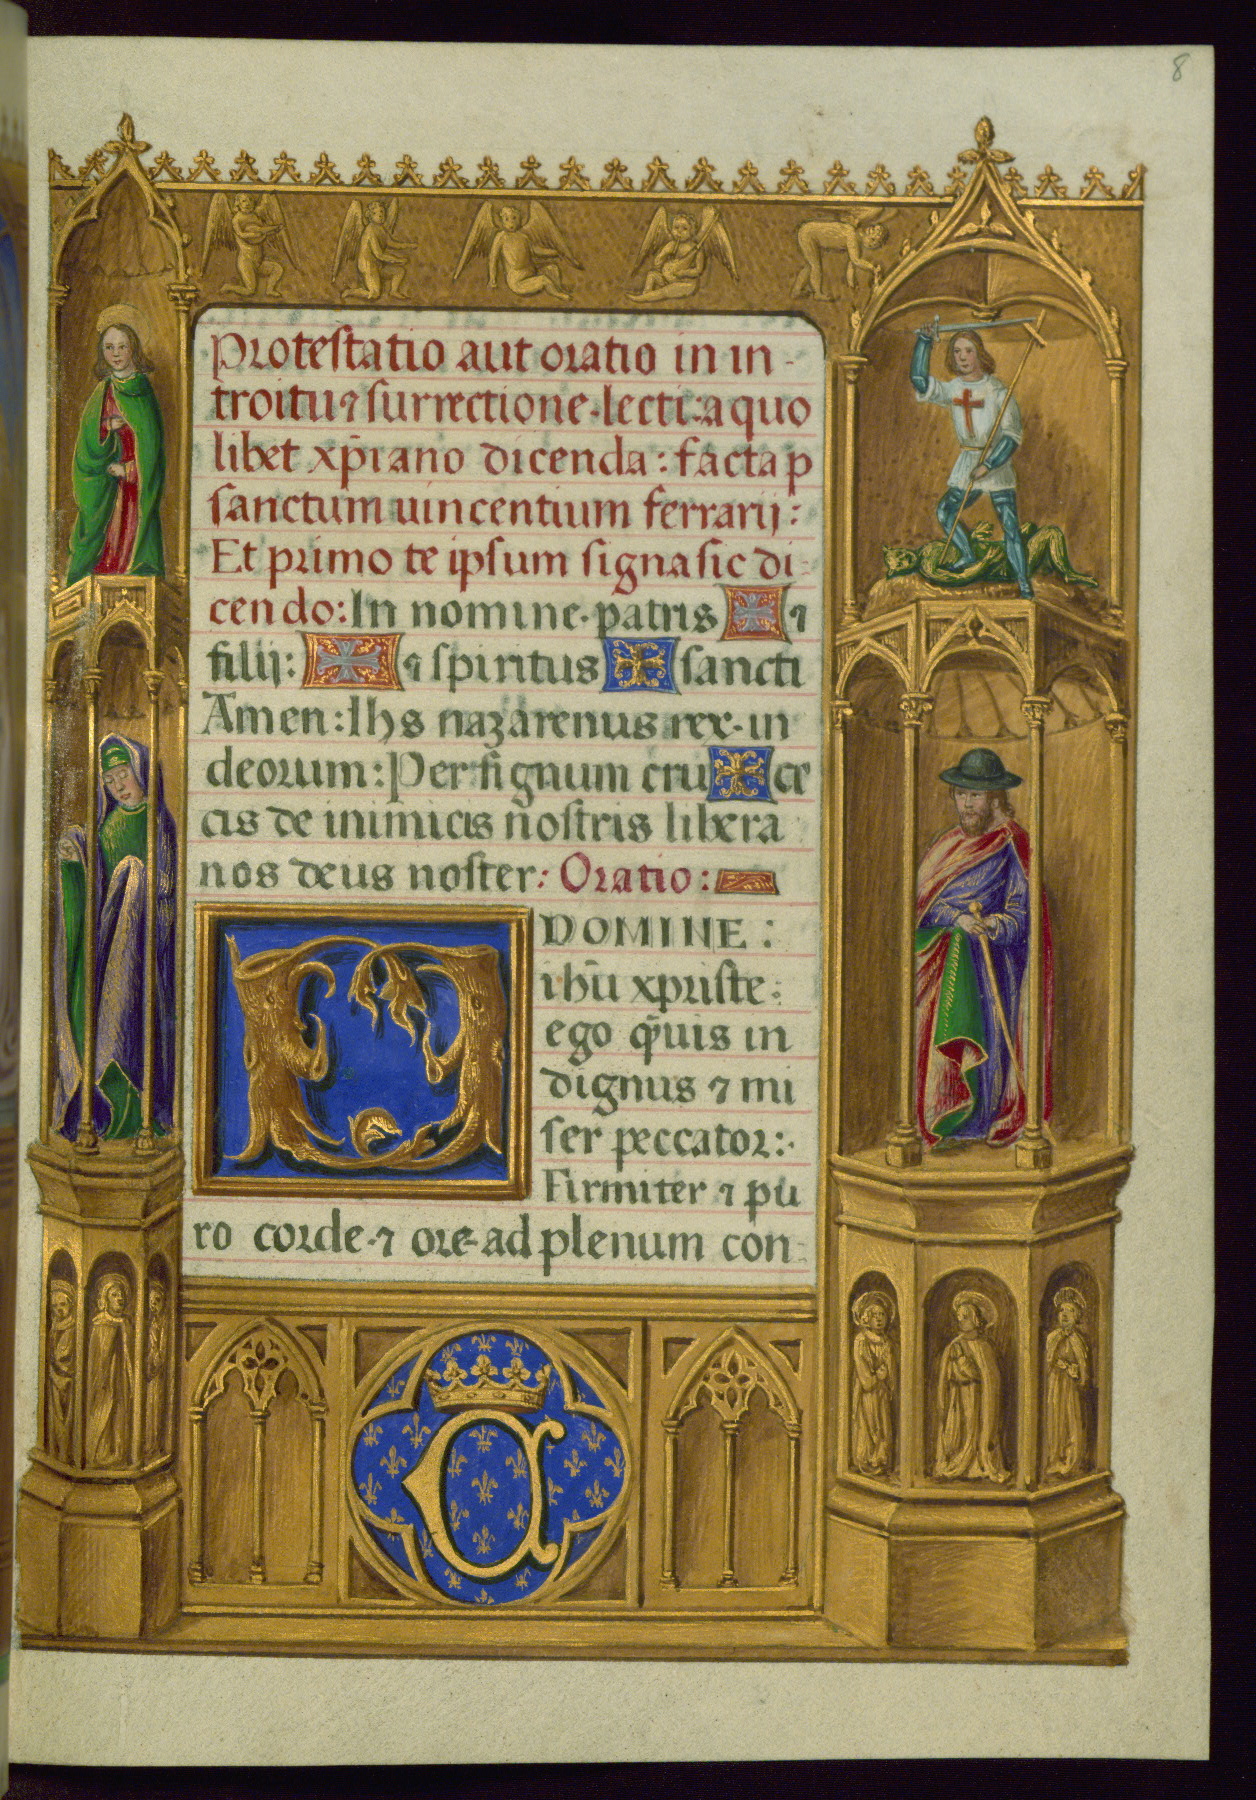 8
Protestatio aut oratio in in-
troitu ⁊ surrectione·lecti:a quo
libet xp̄iano dicenda: facta p
sanctum uincentium ferrarij:
Et primo te ipsum signa sic di:
cendo: In nomine·patris ⁊
filij: ⁊ spiritus sancti
Amen: Ihs nazarenus rex·iu
deorum: Per signum cru ce
cis de inimicis nostris libera
nos deus noster: Oratio:
DOMINE:
ihū xpriste:
ego q̄uis in
dignus ⁊ mi
ser peccator:·
Firmiter ⁊ pu
ro corde·⁊ ore·ad plenum con: